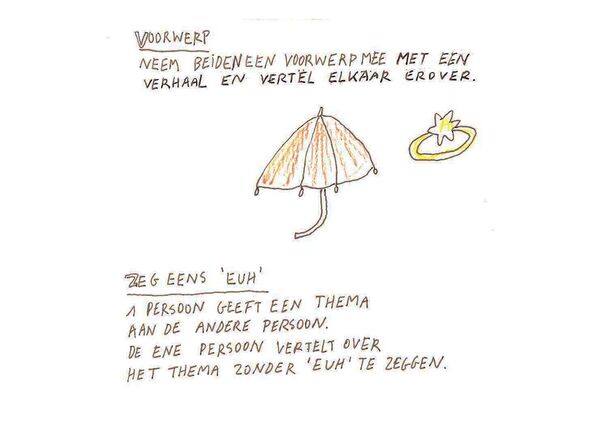 VOORWERP
NEEM BEIDEN EEN VOORWERP MEE MET EEN
VERHAAL EN VERTËL ELKAAR EROVER.
ZEG EENS 'EUH'
1 PERSOON GEEFT EEN THEMA
AAN DE ANDERE PERSOON.
DE ENE PERSOON VERTELT OVER
HET THEMA ZONDER 'EUH' TE ZEGGEN.